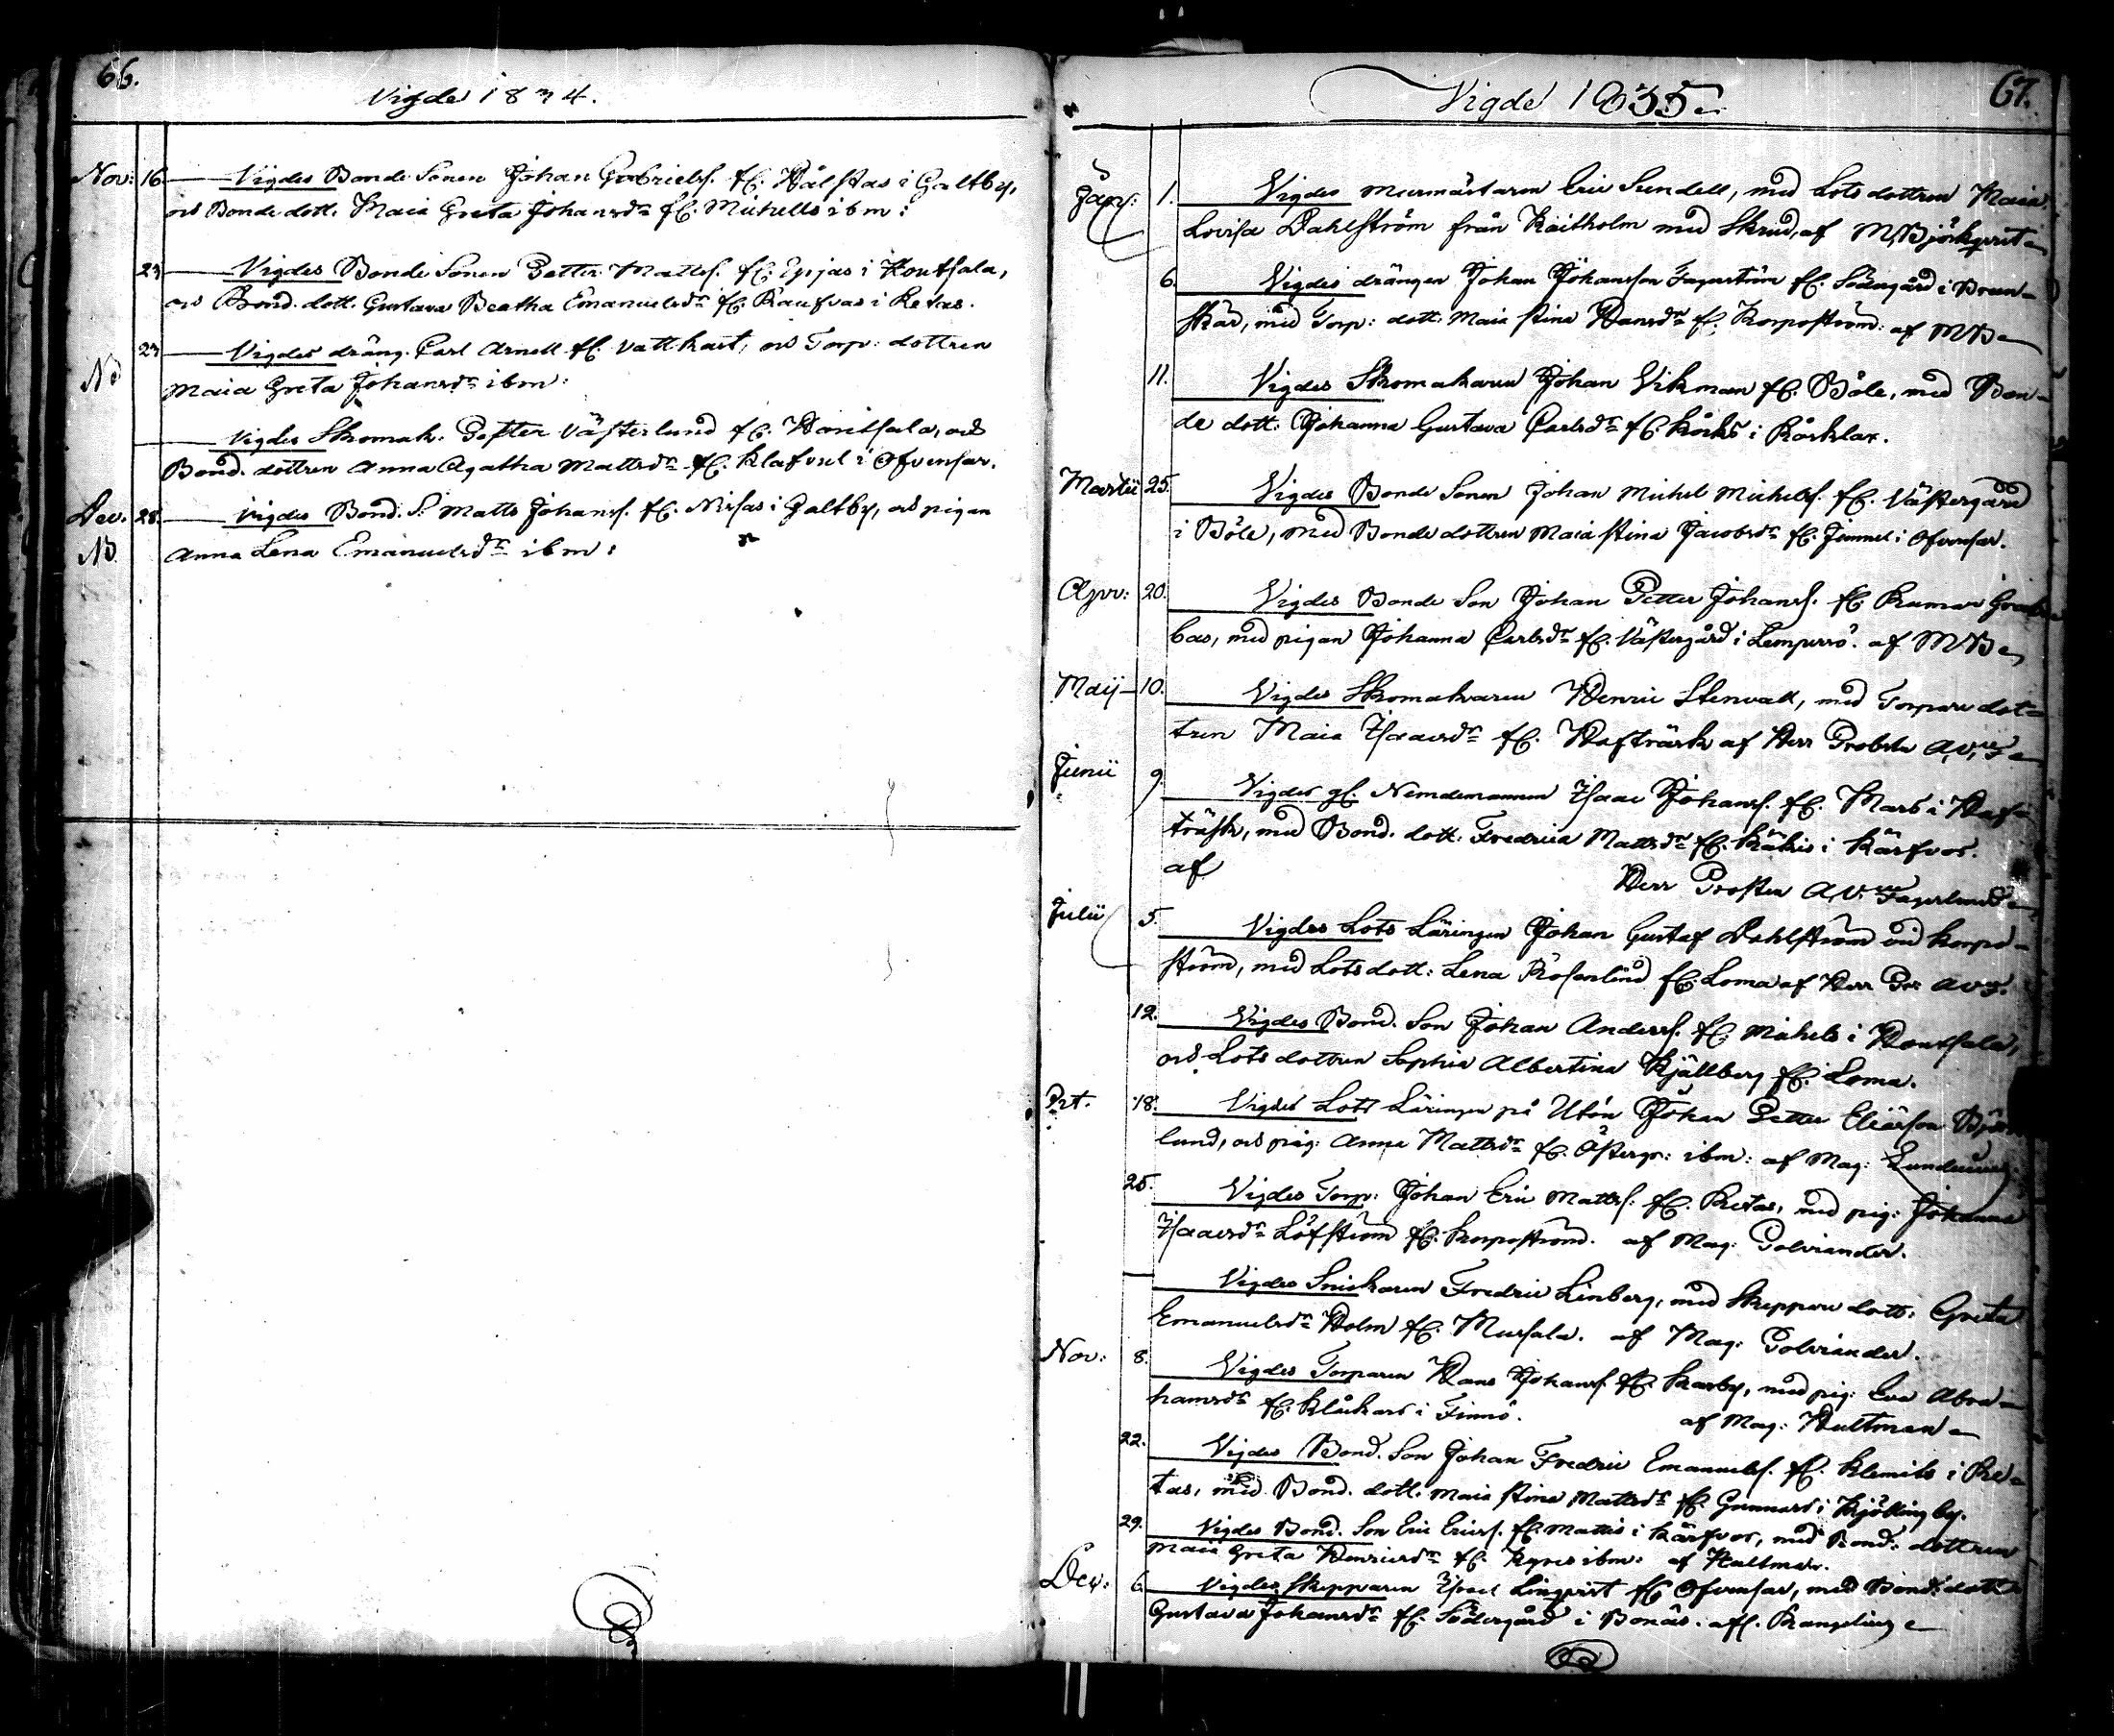 66.
Vigde 1834.
Nov: 16. Vigdes Bonde Sonen Johan Gabriels. fr. Wålstas i Galtby,
och Bonde dott. Maia Greta Johansdr fr. Michells ibm:
23 Vigdes Bonde Sonen Petter Matts. fr. i Houtsala,
och Bond. dott. Gustava Beatha Emanuelsdr fr. i Retas.
23 Vigdes dräng. Carl Arnell fr. Vattkast, och Torp: dottren
Maia Greta Johansdr ibm:
Vigdes Skomak: Petter Västerlund fr. Houtsala, och
Bond. dottren Anna Agatha Mattsdr fr. i Öfvensar.
Dec. 28. Vigdes Bond. S. Matts Johans. fr. Nissas i Galtby, och pigan
Anna Lena Emanuelsdr ibm:
67.
Vigde 1835
Jan: 1. Vigdes Murmästaren Eric Sundell, med Lots dottren Maia
Lovisa Dahlström från Kaitholm med Skrud, af M. Björkqvist
6. Vigdes drängen Johan Johansson Fagerström fr. Södergård i Brun-
skär, med Torp: dott: Maia Stina Hansdr fr. Korpoström: af MB
11. Vigdes Skomakaren Johan Vikman fr. Böle, med Bon-
de dott: Johanna Gustava Carlsdr fr. i Kårklax.
Martii 25. Vigdes Bonde Sonen Johan Michel Michels. fr. Västergård
i Böle, med Bonde dottren Maia Stina Jacobsdr fr. Jimmel i Öfvensar.
Apr: 20. Vigdes Bonde Son Johan Petter Johans. fr.
bas, med pigan Johanna Carlsdr fr. Västergård i Lempersö. af MB
Maij 10. Vigdes Skomakaren Henric Stenvall, med Torpare dot-
tren Maia Isaacsdr fr. Hafträsk af Herr Probsten
Junii 9. Vigdes gl. Nämdemannen Isaac Johans. fr. Mars i Haf-
träsk, med Bond. dott. Fredrica Mattsdr fr. i Kärfvos.
af Herr Prosten Fagerlund
Julii 5. Vigdes Lots Läringen Johan Gustaf Dahlström vid Korpo-
ström, med Lots dott: Lena Rosenlund fr. Loma af Herr
12. Vigdes Bond. Son Johan Anders. fr. Michels i Houtsala,
och Lots dottren Sophia Albertina Kjällberg fr. Loma.
18. Vigdes Lots Läringen på Utön Johan Petter
lund, och pig: Anna Mattsdr fr. Österg: ibm: af Mag:
25. Vigdes Torp: Johan Eric Matts. fr. Retas, med pig: Johanna
Isaacsdr Löfström fr. Korpoström. af Mag: Polviander.
Vigdes Snickaren Fredric Linberg, med Skeppare dott: Greta
Emanuelsdr Holm fr. Mursala. af Mag: Polviander.
Nov: 8. Vigdes Torparen Hans Johans. fr. Karby, med pig: Eva Abra-
hamsdr fr. Klåckars i Finnö. af Mag: Hultman
22. Vigdes Bond. Son Johan Fredric Emanuels. fr. Klemits i Re-
tas, med Bond. dott. Maia Stina Mattsdr fr. Gunnars i Kjöllingby.
29. Vigdes Bond. Son Eric Erics. fr. Mattis i Kärfvos, med Bond: dottren
Maia Greta Henricsdr fr. ibm: af Hultman.
Dec: 6. Vigdes Skepparen Israel Linqvist fr. Öfvensar, med Bond: dott:
Gustava Johansdr fr. Södergård i Bonäs.